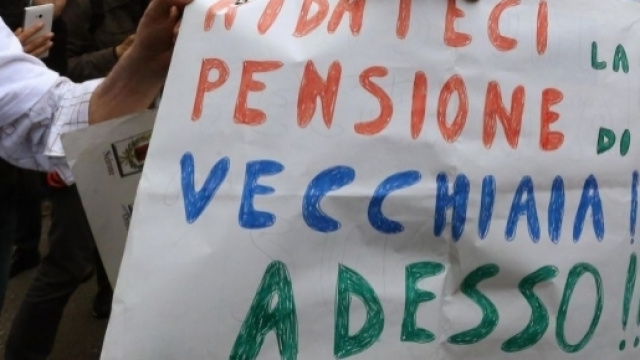 RIDATECI LA
PENSIONE DI
VECCHIAIA!
ADESSO!!